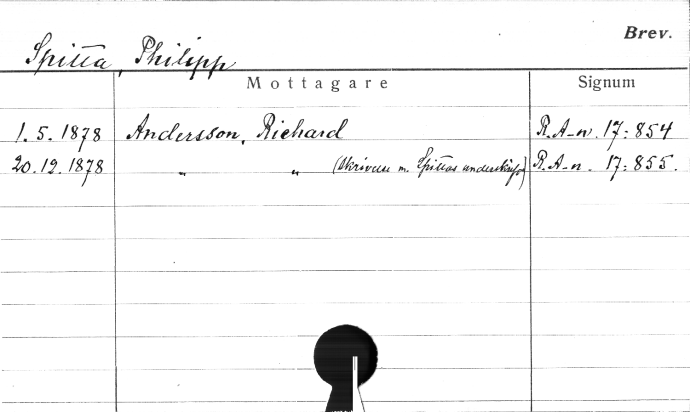 Brev.
Spitta, Philipp
Mottagare Signum
1.5.1878 Andersson, Richard R.A-n. 17:854
20.12.1878 " " (Skrivelse m. Spittas underskrift) R.A-n. 17:855.